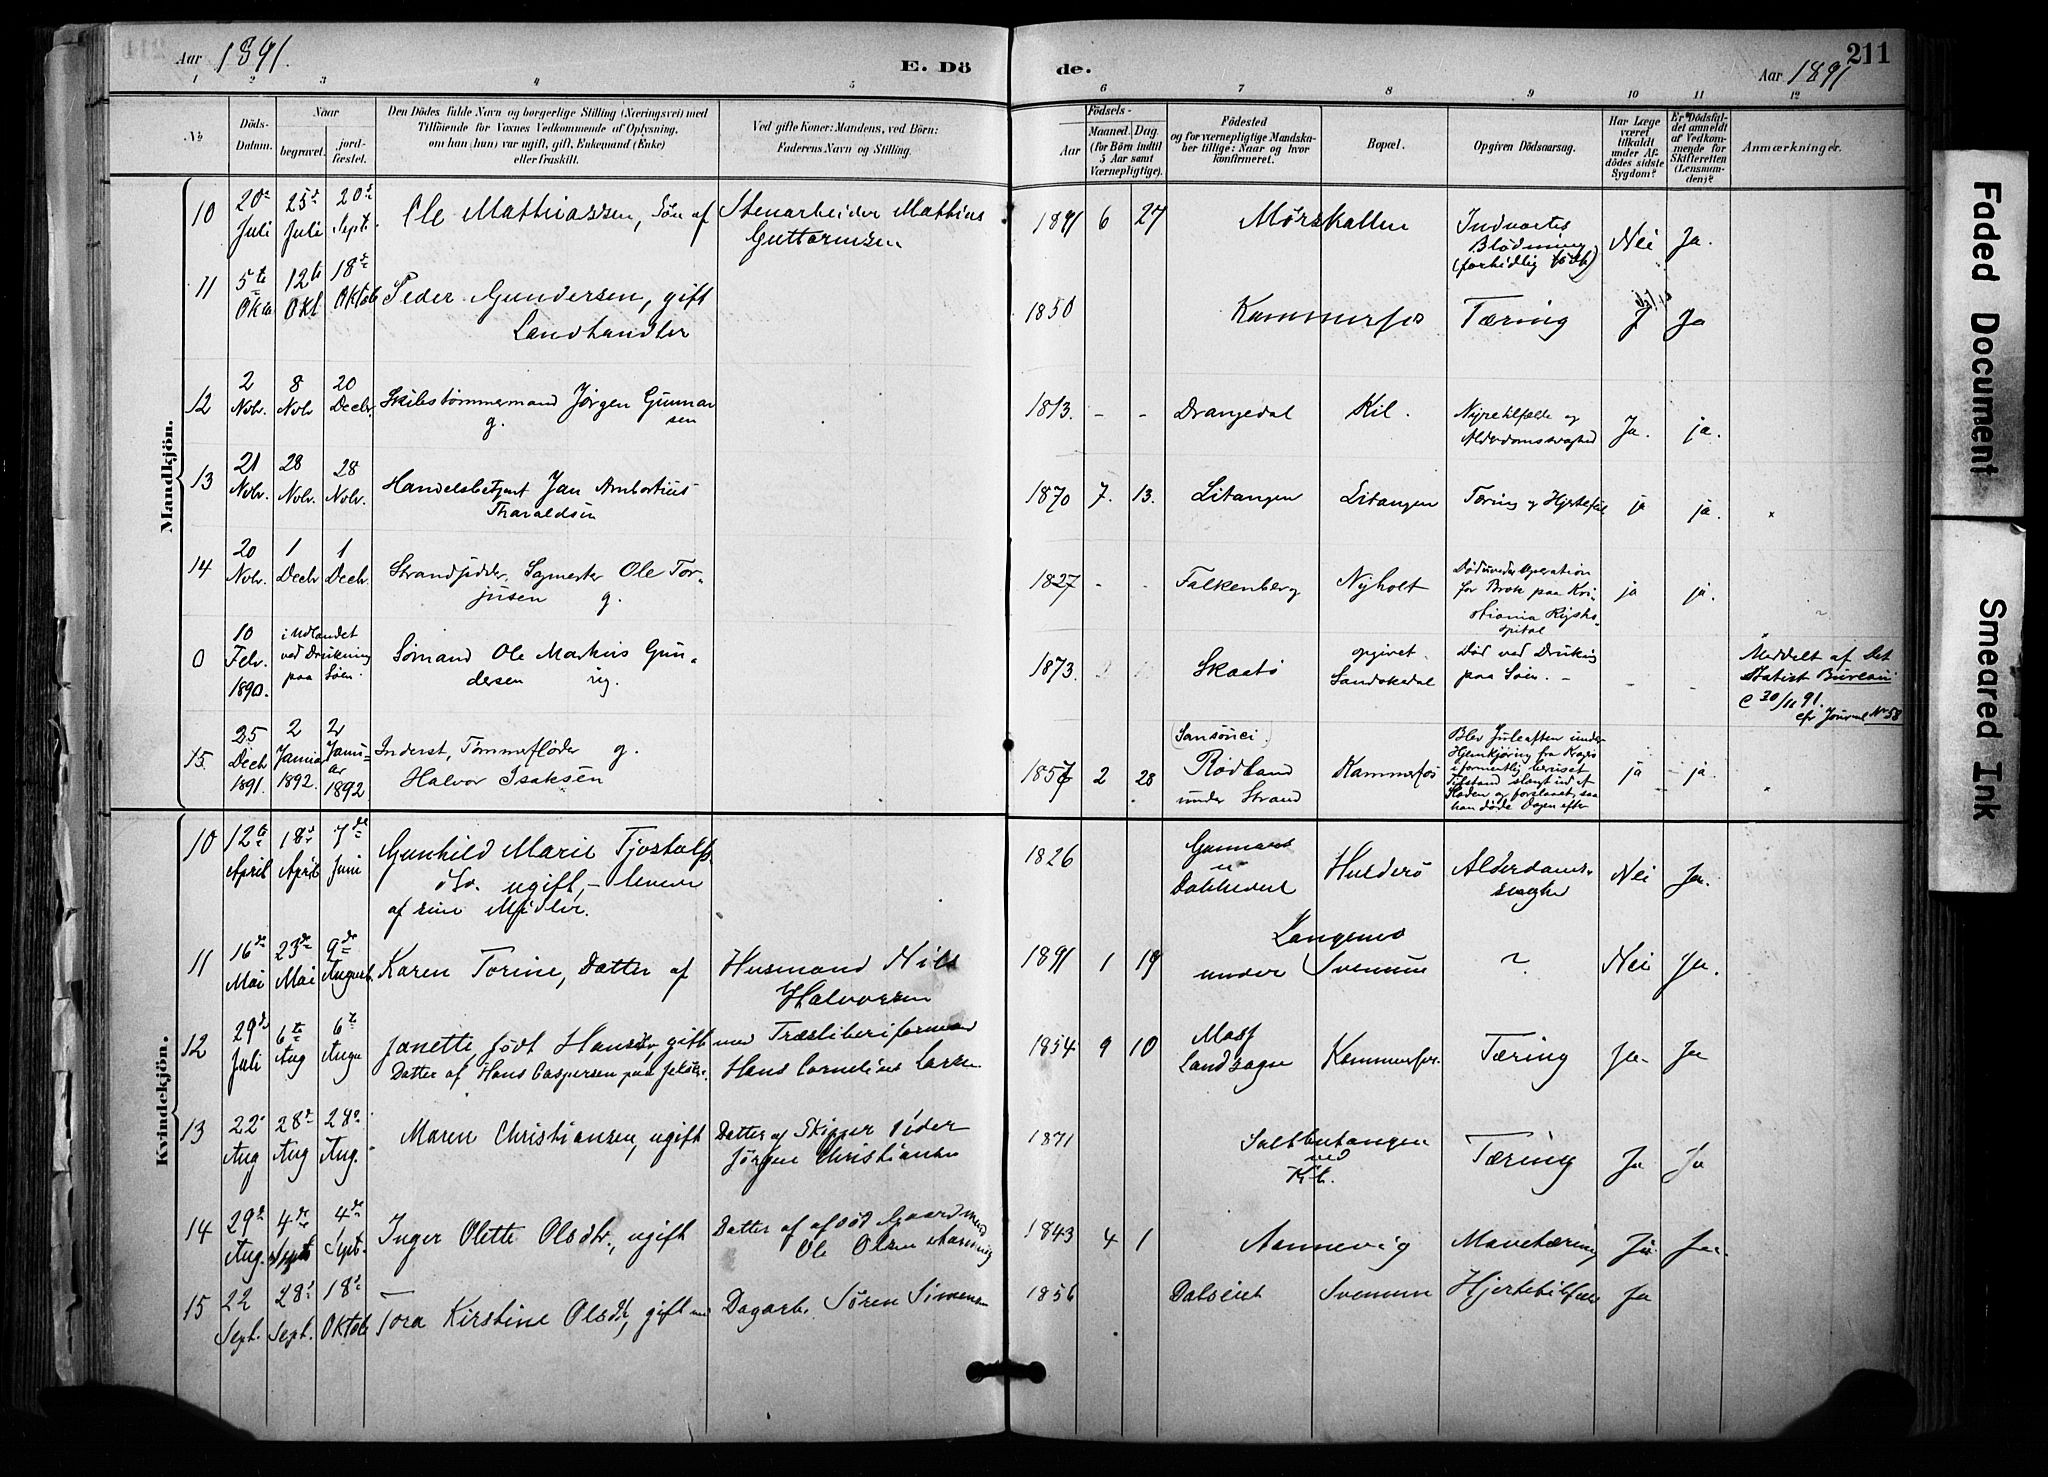 Aar 1891.
E. Dö
de.
Aar 1891
211
1 2 3 4 5 6 7 8 9 10 11 12
No
Döds-Datum.
Naar
begravet.
jord-fæstet.
Den Dödes fulde Navn og borgerlige Stilling (Næringsvei) med
Tilföiende for Voxnes Vedkommende af Oplysning,
om han (hun) var ugift, gift, Enkemand (Enke)
eller fraskilt.
Ved gifte Koner: Mandens, ved Börn:
Faderens Navn og Stilling.
Födsels-
Aar
Maaned. Dag.
(for Börn indtil
5 Aar samt
Værnepligtige).
Födested
og for værnepligtige Mandska-
ber tillige: Naar og hvor
konfirmeret.
Bopæl.
Opgiven Dödsaarsag.
Har Læge
været
tilkaldt
under Af-
dödes sidste
Sygdom?
Er Dödsfal-
det anmeldt
af Vedkom-
mende for
Skifteretten
(Lensman-
den)?
Anmærkninger.
Mandkjön.
10 20de Juli 25de Juli 20de Sept. Ole Mathiassen, Søn af Stenarbeider Mathias
Guttormsen 1891 6 27 Mørskallen Indvortes
Blødning
(forhidlig født) Nei Ja.
11 5te Oktb 12te Okt 18de Oktob Peder Gundersen, gift
Landhandler 1850 Kammerfos Tæring J Ja
12 2 Novbr. 8 Novbr 20 Decbr. Skibstømmermand Jørgen Gunnar
sen g. 1813. - - Drangedal Kil. Nyretilfælde og
Alderdomssvaghed Ja. ja.
13 21 Novbr. 28 Novbr. 28 Novbr. Handelsbetjent Jan Ambortius
Tharaldsen 1870 7. 13. Litangen Litangen Tæring og Hjertefeil ja ja.
14 20 Novbr. 1 Decbr 1 Decbr. Strandsidder, Sagmester Ole Tor-
jusen g. 1827 - - Falkenberg Nyholt Død under Operation
for Brok paa Kri-
stiania Rigsho-
spital ja ja.
0 10 Febr. 1890. i Udlandet
ved Drukning
paa Søen. Sømand Ole Markus Gun-
dersen ug. 1873. Skaatø opgivet
Sandøkedal Død ved Drukning
paa Søen. - - - Meddelt af Det
Statist Bureau
C 30/11 91.
cfr Journal No 58
15. 25 Decb 1891. 2 Januar 1892. 2 Januar 1892 Inderst, Tømmerfløder g.
Halvor Isaksen 1857 2 28 (Sansouci.)
Rødland
under Strand Kammerfos Blev Juleaften under
Hjemkjøring fra Kragerø
i formentlig beruset
Tilstand slængt ud af
Slæden og forslaaet, saa
han døde Dagen efter ja ja.
Kvindekjön.
10 12te April 18de April 7de Juni Gunhild Marie Tjostolfs
dtr. ugift, - lever
af sine Midler. 1826 Gunnars
u
Dobbedal Huldrø Alderdoms-
svaghe Nei Ja.
11 16de Mai 23de Mai 9de August. Karen Torine, Datter af Husmand Nils
Halvorsen 1891 1 19 Langemo
under Svenum ? Nei Ja.
12 29de Juli 6te Aug 6te Augu Janette født Hansdtr, gift med Træsliberiformand
Datter af Hans Caspersen paa Hans Cornelius Larsen 1854 9 10 Moss
Landsogn Kammerfos. Tæring Ja- Ja
13 22de Aug 28de Aug 28de Aug. Maren Christiansen, ugift Datter af Skipper Peder
Jørgen Christiansen 1871 Saltbutangen
ved
Kil. Tæring Ja Ja
14 29de Aug. 4de Sept 4de Sept. Inger Olette Olsdtr., ugift Datter af afdød Gaardmand
Ole Olsen Aannevig 1843 4 1 Aannevig Mavetæring Ja Ja.
15 22 Sept. 28de Sept. 18de Oktob Tora Kirstine Olsdtr, gift med Dagarb. Søren Simensen 1856 Dalseiet Svenum Hjertetilfælde Ja
Faded Document
Smeared Ink